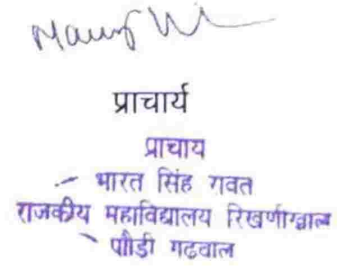 प्राचार्य
प्राचाय
भारत सिंह गवत
राजकीय महाविद्यालय रिखणीखाल
पौड़ी गढवाल